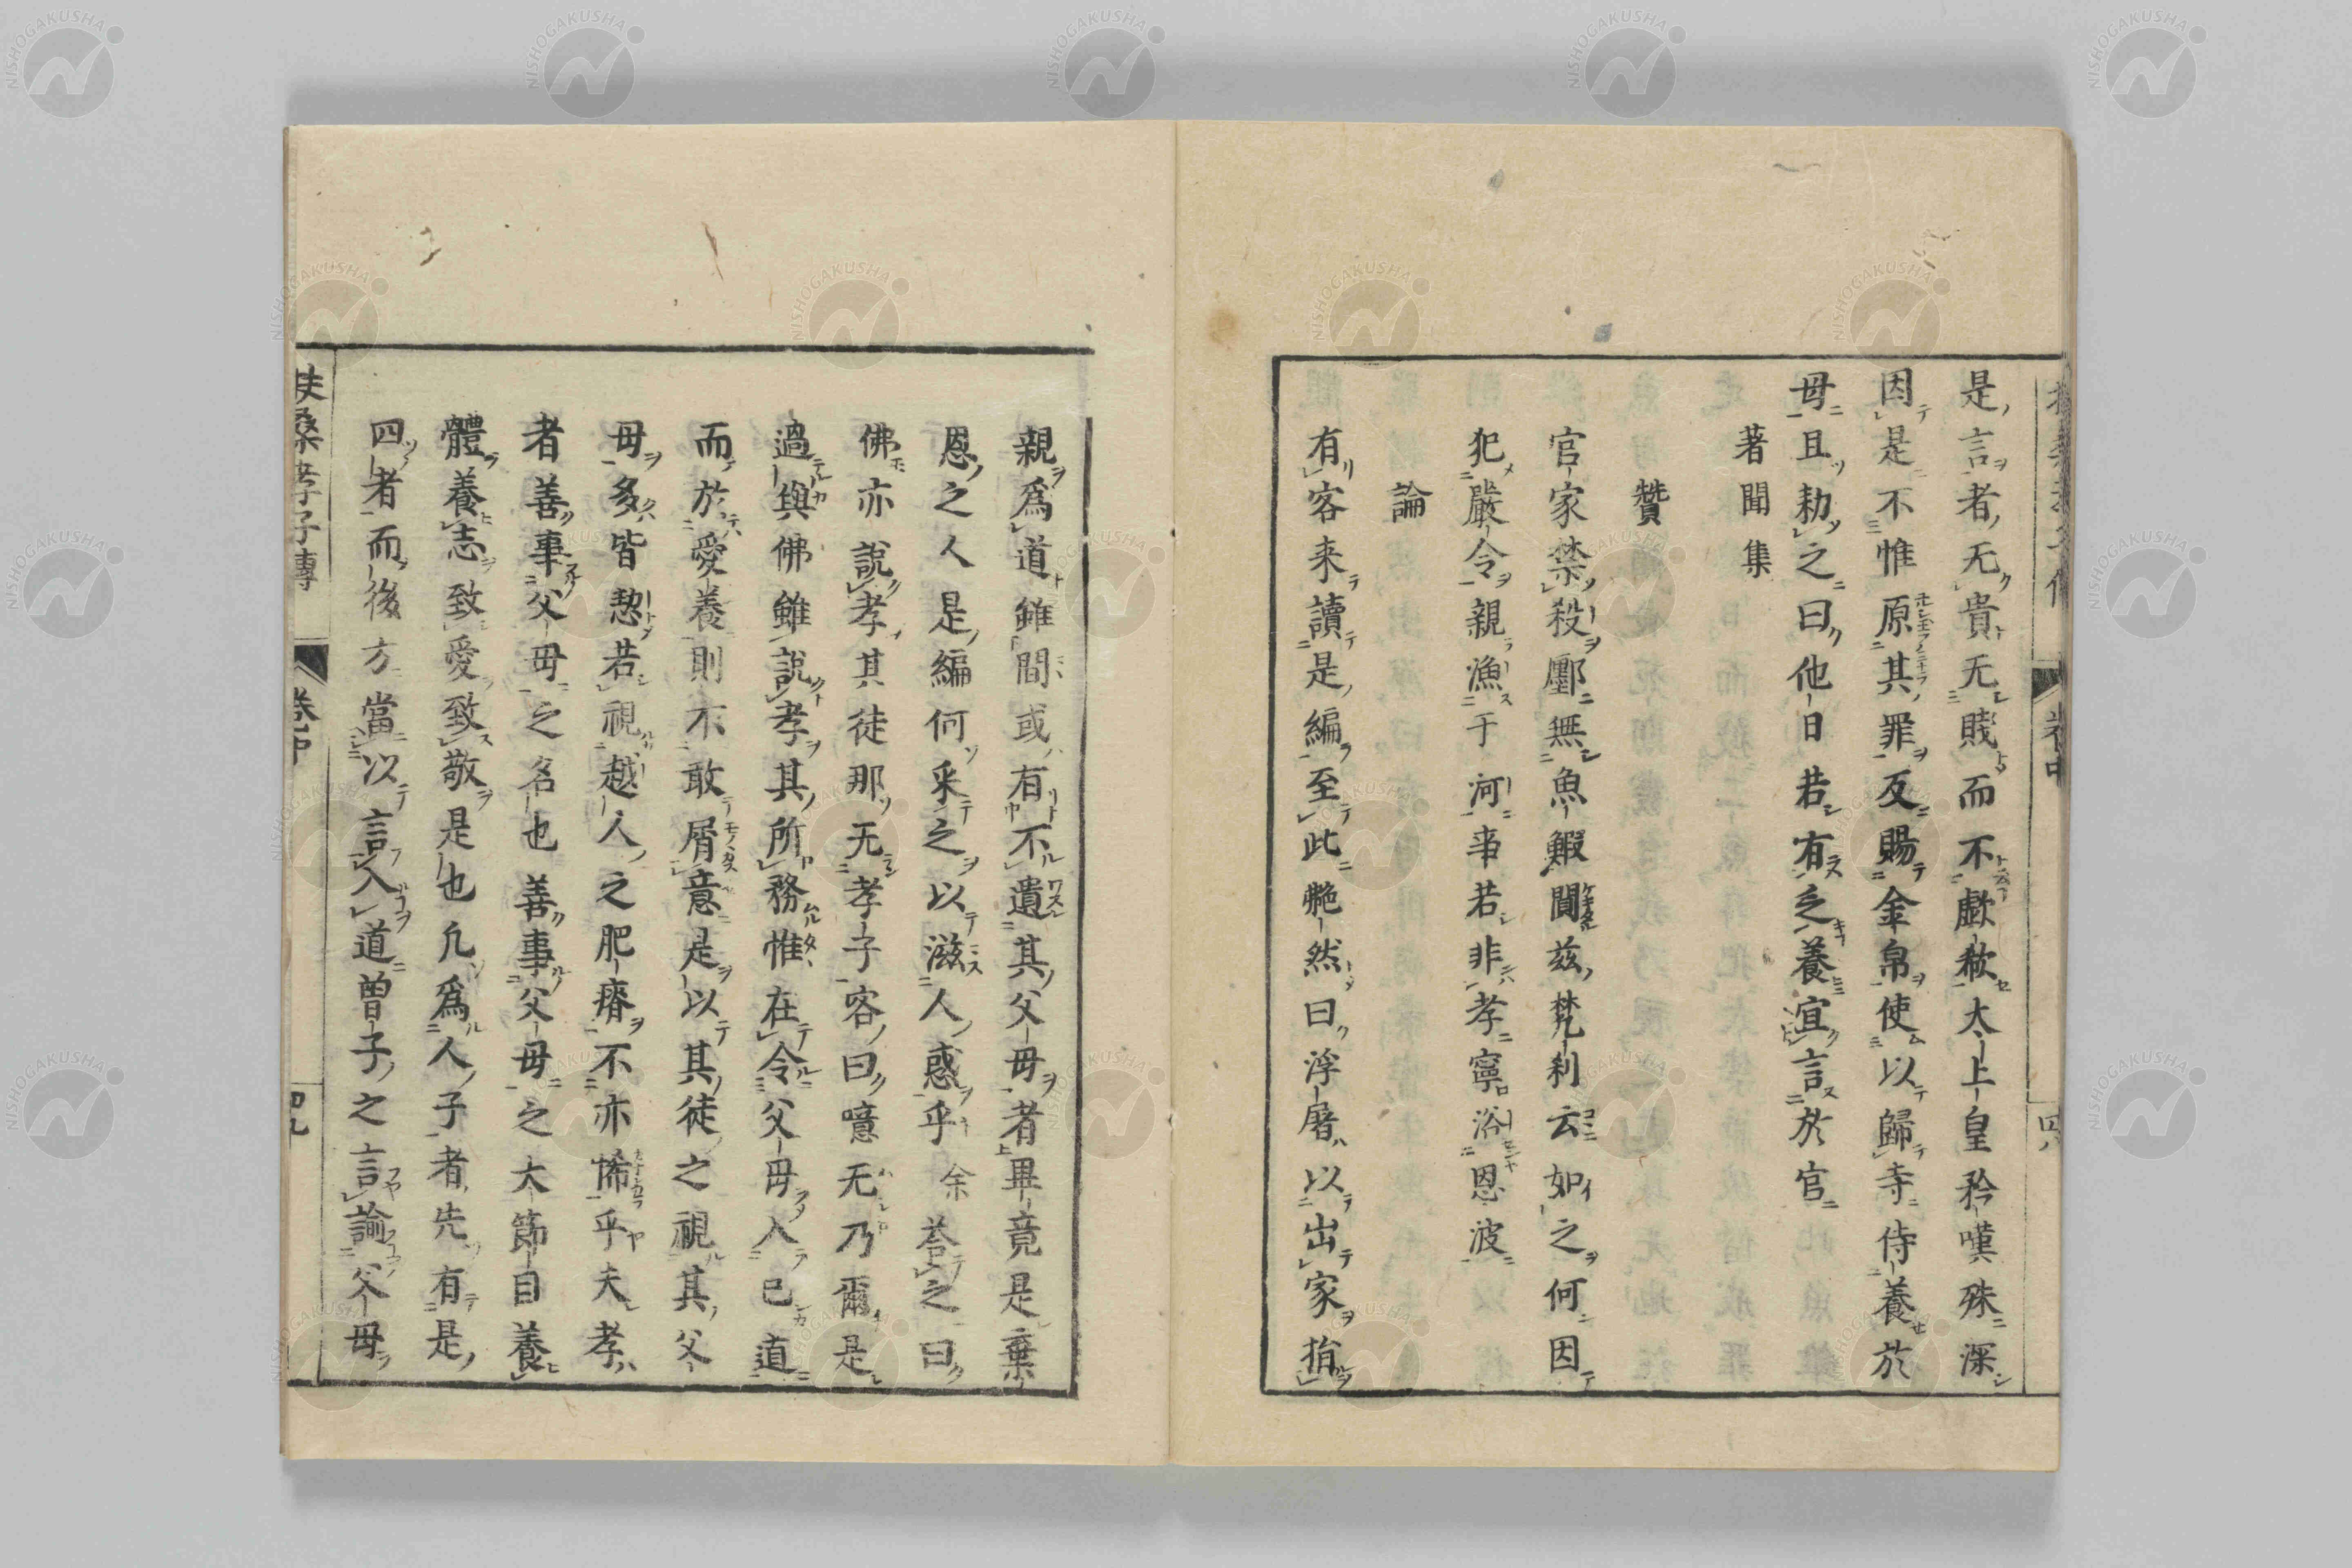 是言者无貴无賤而不歔欷大上皇矜嘆殊深
因是不惟原其罪反賜金帛使以歸寺侍養於
母且勑之曰他日若有乏養宜言於官
著聞集
贊
官家禁殺酈無魚鰕聞茲梵刹云如之何因
犯嚴令親漁于河事若非孝寧浴恩波
論
有客来讀是編至此艴然曰浮屠以出家捐
親為道雖間或有不遺其父母者畢竟是棄
恩之人是編何采之以滋人惑乎余荅之曰
佛亦說孝其徒那无孝子容曰噫无乃爾是
過與佛雖說孝其所務惟在令父母入己道
而於愛養則不敢屑意是以其徒之視其父
母多皆恝若視越人之肥瘠不亦悕乎夫孝
者善事父母之名也善事父母之大節目養
體養志致愛致敬是也凢為人子者先有是
四者而後方當以言入道曽子之言諭父母
扶桑孝子傳
卷中
四九
卷中
四八
NISHOGAKUSHA